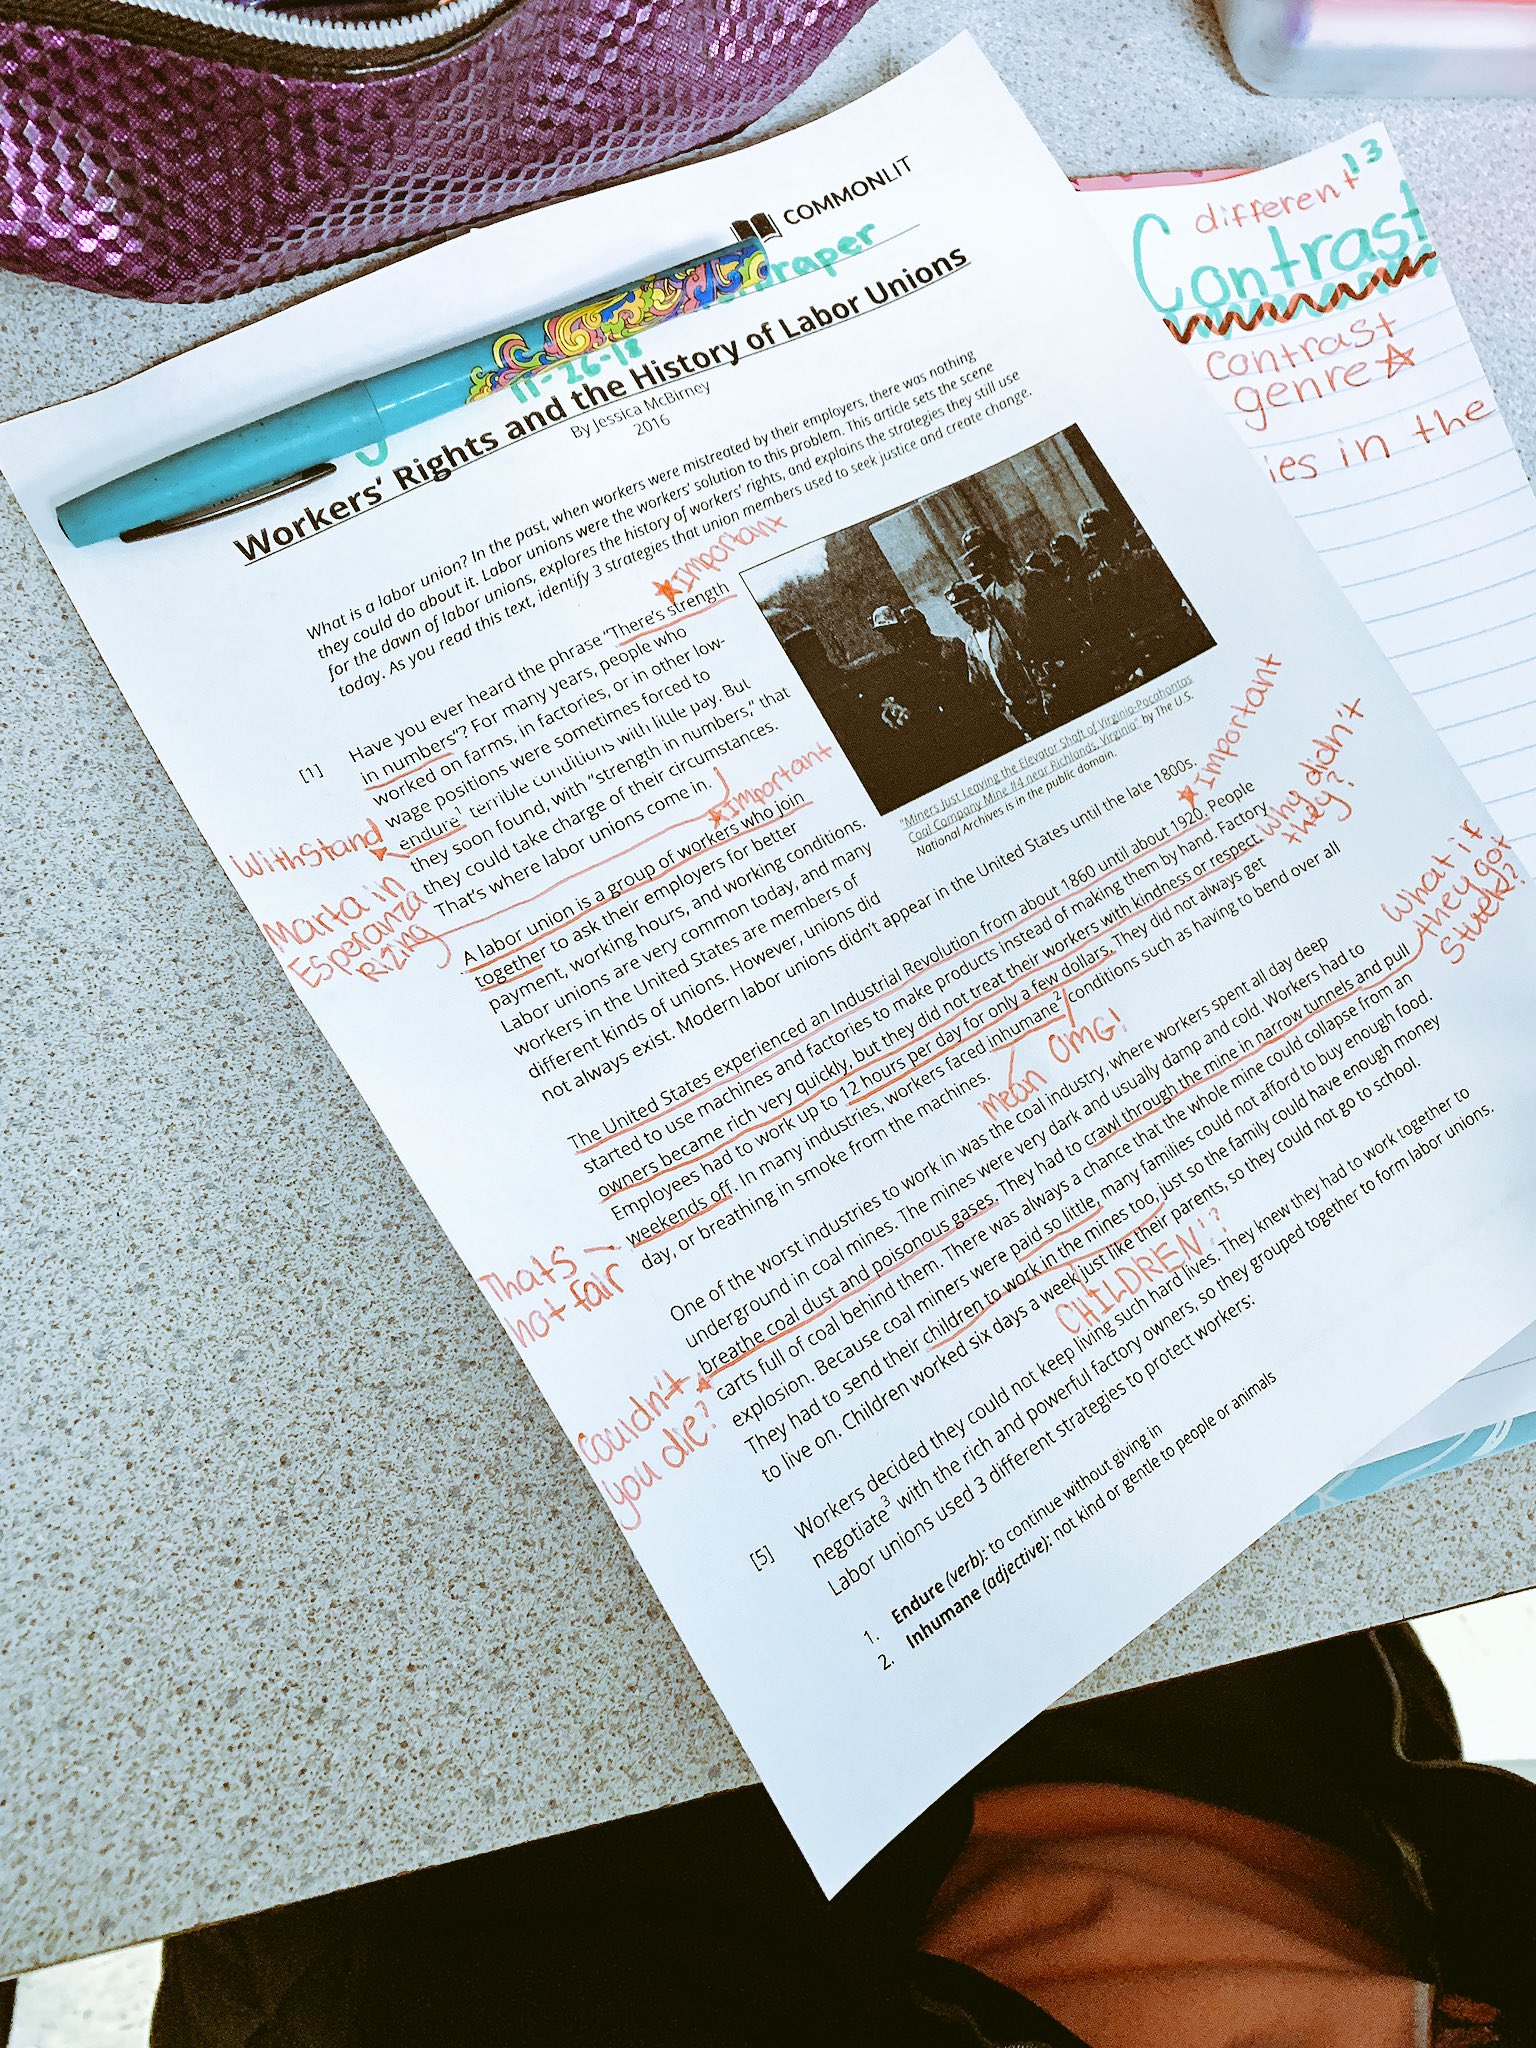 COMMONLIT
raper
11-26-18
Workers' Rights and the History of Labor Unions
By Jessica McBirney
2016
What is a labor union? In the past, when workers were mistreated by their employers, there was nothing
they could do about it. Labor unions were the workers' solution to this problem. This article sets the scene
for the dawn of labor unions, explores the history of workers' rights, and explains the strategies they still use
today. As you read this text, identify 3 strategies that union members used to seek justice and create change.
★Important
[1]
Have you ever heard the phrase "There's strength
in numbers"? For many years, people who
worked on farms, in factories, or in other low-
wage positions were sometimes forced to
endure¹ terrible conditions with little pay. But
they soon found, with "strength in numbers," that
they could take charge of their circumstances.
That's where labor unions come in.
Withstand
Marta in
Esperanza
Rizing
"Miners Just Leaving the Elevator Shaft of Virginia-Pocahontas
Coal Company Mine #4 near Richlands, Virginia" by The U.S.
National Archives is in the public domain.
★Important
A labor union is a group of workers who join
together to ask their employers for better
payment, working hours, and working conditions.
Labor unions are very common today, and many
workers in the United States are members of
different kinds of unions. However, unions did
not always exist. Modern labor unions didn't appear in the United States until the late 1800s.
★Important
The United States experienced an Industrial Revolution from about 1860 until about 1920. People
started to use machines and factories to make products instead of making them by hand. Factory
owners became rich very quickly, but they did not treat their workers with kindness or respect.
Employees had to work up to 12 hours per day for only a few dollars. They did not always get
weekends off. In many industries, workers faced inhumane² conditions such as having to bend over all
day, or breathing in smoke from the machines.
Why didn't
they?
mean
OMG!
Thats
not fair
One of the worst industries to work in was the coal industry, where workers spent all day deep
underground in coal mines. The mines were very dark and usually damp and cold. Workers had to
breathe coal dust and poisonous gases. They had to crawl through the mine in narrow tunnels and pull
carts full of coal behind them. There was always a chance that the whole mine could collapse from an
explosion. Because coal miners were paid so little, many families could not afford to buy enough food.
They had to send their children to work in the mines too, just so the family could have enough money
to live on. Children worked six days a week just like their parents, so they could not go to school.
What if
they got
stuck!?
Couldn't
you die?
CHILDREN!?
[5]
Workers decided they could not keep living such hard lives. They knew they had to work together to
negotiate³ with the rich and powerful factory owners, so they grouped together to form labor unions.
Labor unions used 3 different strategies to protect workers:
1. Endure (verb): to continue without giving in
2. Inhumane (adjective): not kind or gentle to people or animals
13
different
Contrast
contrast
genre☆
ies in the